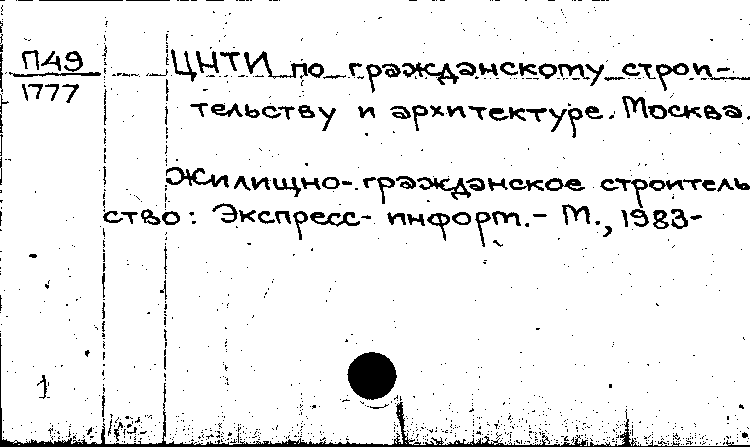 П49
1777
ЦНТИ по гражданскому строи-
тельству и архитектуре. Москва.
Жилищно-гражданское строитель
ство: Экспресс-информ.- М., 1983-
1